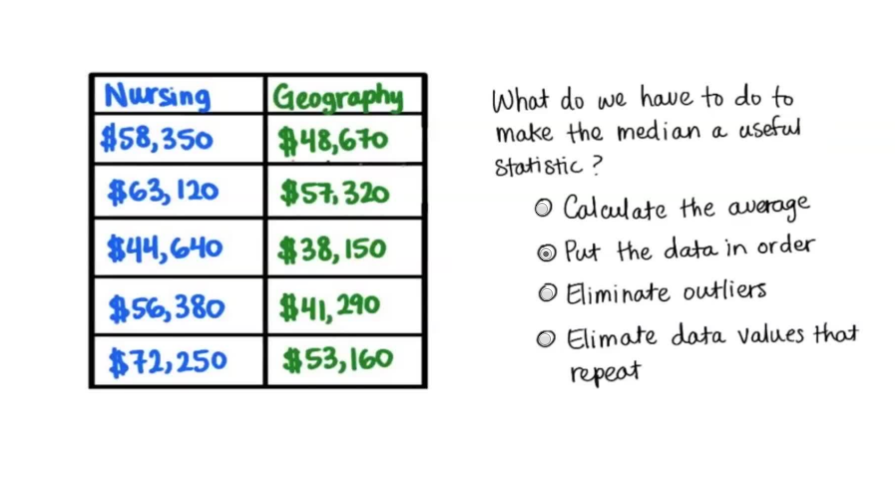 Nursing Geography
$58,350 $48,670
$63,120 $57,320
$44,640 $38,150
$56,380 $41,290
$72,250 $53,160
What do we have to do to
make the median a useful
statistic?
Calculate the average
Put the data in order
Eliminate outliers
Elimate data values that
repeat